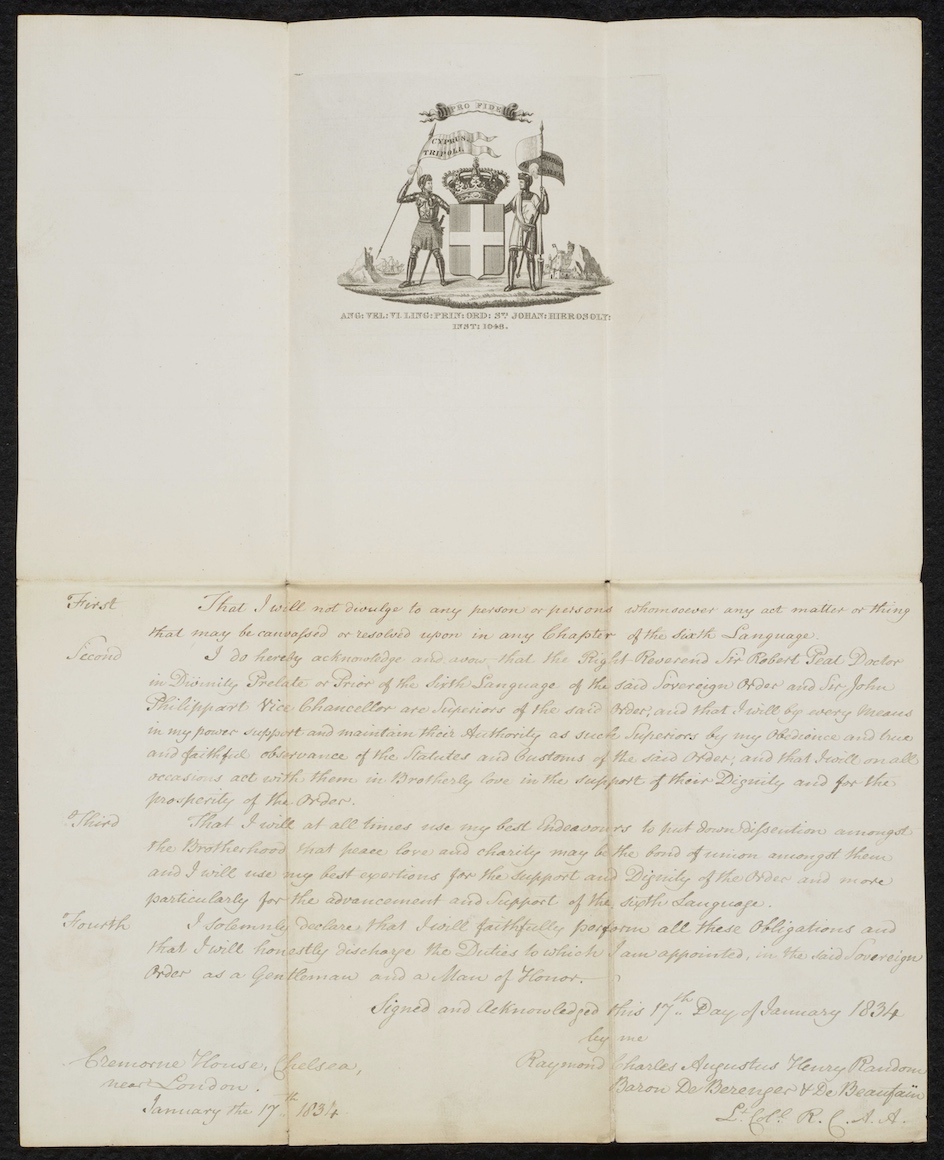 PRO FIDE
CYPRUS.
TRIPOLI.
ANG: VEL: VI LING: PRIN: ORD: STI JOHAN: HIEROSOLY:
INST: 1048.
First That I will not divulge to any person or persons whomsoever any act matter or thing
that may be canvassed or resolved upon in any Chapter of the sixth Language.
Second I do hereby acknowledge and avow that the Right Reverend Sir Robert Peat Doctor
in Divinity Prelate or Prior of the Sixth Language of the said Sovereign Order and Sir John
Philippart Vice Chancellor are Superiors of the said Order, and that I will by every Means
in my power support and maintain their Authority as such Superiors by my Obedience and true
and faithful observance of the Statutes and Customs of the said Order, and that I will on all
occasions act with them in Brotherly love in the support of their Dignity and for the
prosperity of the Order.
Third That I will at all times use my best Endeavours to put down dissention amongst
the Brotherhood that peace love and charity may be the bond of union amongst them
and I will use my best exertions for the support and Dignity of the Order and more
particularly for the advancement and Support of the sixth Language.
Fourth I solemnly declare that I will faithfully perform all these Obligations and
that I will honestly discharge the Duties to which I am appointed, in the said Sovereign
Order as a Gentleman and a Man of Honor.
Signed and Acknowledged this 17th Day of January 1834
by me
Cremorne House, Chelsea, Raymond Charles Augustus Henry Random
near London. Baron De Berenger & De Beaufain
January the 17th 1834. Lt Coll. R. C. A. A.